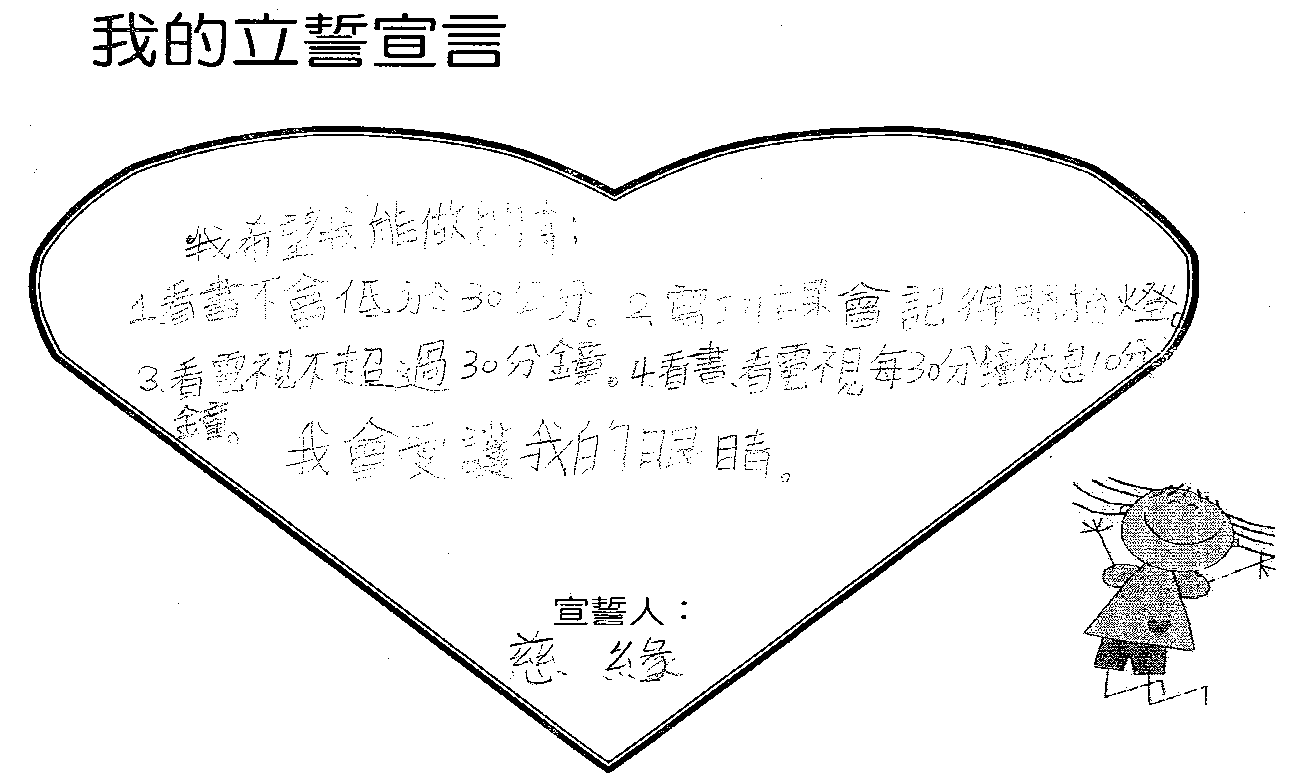 我的立誓宣言
我希望我能做到的有:
1.看書不會低於30公分。2.寫功課會記得開抬燈。
3.看電視不超過30分鐘。4.看書、看電視每30分鐘休息10分
鐘。
我會受護我的眼睛。
宣誓人：
慈緣